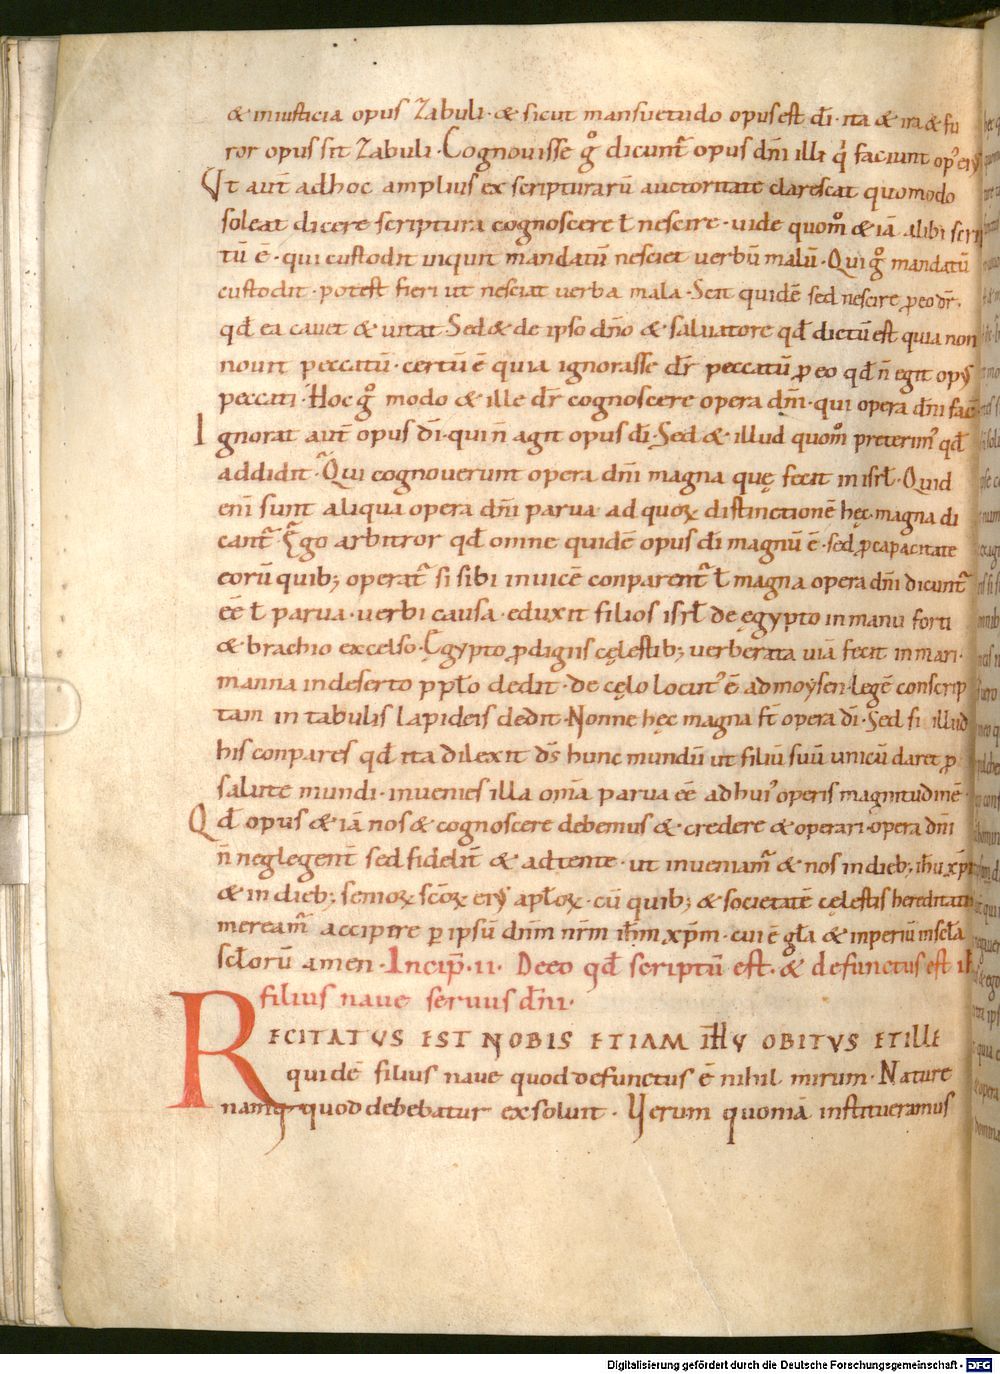 & iniusticia opus Zabuli · & sicut mansuetudo opus est dī · ita & ira & fu
ror opus sit Zabuli · Cognouisse gͦ dicunt̄ opus dn̄i illi qͥ faciunt op' eiꝰ
Vt aut̄ adhoc amplius ex scripturarū auctoritate clarescat quomodo
soleat dicere scriptura cognoscere ł nescire · uide quom̊ & iā alibi scri
tū ē · qui custodit inquit mandatū nesciet uerbū malū · Qui gͦ mandatū
custodit · potest fieri ut nesciat uerba mala · Scit quidē sed nescire ꝓ eo dr̄ ·
qd̄ ea cauet & uitat · Sed & de ipso dn̄o & saluatore qd̄ dictū est quia non
nouit peccatū · certū ē quia ignorasse dr̄ peccatū ꝓ eo qd̄ n̄ egit opꝰ
peccati · Hoc gͦ modo & ille dr̄ cognoscere opera dn̄i · qui opera dn̄i
Ignorat aut̄ opus dī · qui n̄ agit opus dī · Sed & illud quom̊ preterim' qd̄
addidit · Qui cognouerunt opera dn̄i magna quę fecit in isrł · Quid
enī sunt aliqua opera dn̄i parua ad quoꝝ distinctionē hęc magna di
cant̄ · Ego arbitror qd̄ omne quidē opus dī magnū ē · sed ꝓ capacitate
eorū quib; operat̄ si sibi inuicē conparent̄ ł magna opera dn̄i dicunt̄
eē ł parua · uerbi causa · eduxit filios isrł de ęgypto in manu forti
& brachio excelso · Ęgypto ꝓdigiis cęlestib; uerberata uiā fecit in mari ·
manna in deserto p pło dedit · de cęlo locut' ē ad moysen · legē conscrip
tam in tabulis lapideis dedit · Nonne hęc magna st̄ opera dī · Sed si illud
his conpares qd̄ ita dilexit ds̄ hunc mundū ut filiū suū unicū daret ꝓ
salute mundi · inuenies illa om̄a parua eē ad hui' operis magnitudinē ·
Qd̄ opus & iā nos & cognoscere debemus & credere & operari · opera dn̄i
n̄ neglegent̄ sed fidelit̄ & adtente · ut inueniam̄ & nos in dieb; ih̄u xp̄i
& in dieb; senioꝝ sc̄oꝝ eiꝰ apłoꝝ · cū quib; & societatē cęlestis hereditatis
mereām accipere ꝑ ipsū dn̄m nr̄m ih̄m xp̄m · cui ē gła & inperiū in scła
scłorū amen · Incip̄ · II · De eo qd̄ scriptū est · & defunctus est
filius naue seruus dn̄i ·
RECITATUS EST NOBIS ETIAM IH̄U OBITUS ET ILLE
quidē filius naue quod defunctus ē nihil mirum · Nature
namq; quod debebatur exsoluit · Uerum quoniā institueramus
Digitalisierung gefördert durch die Deutsche Forschungsgemeinschaft - DFG